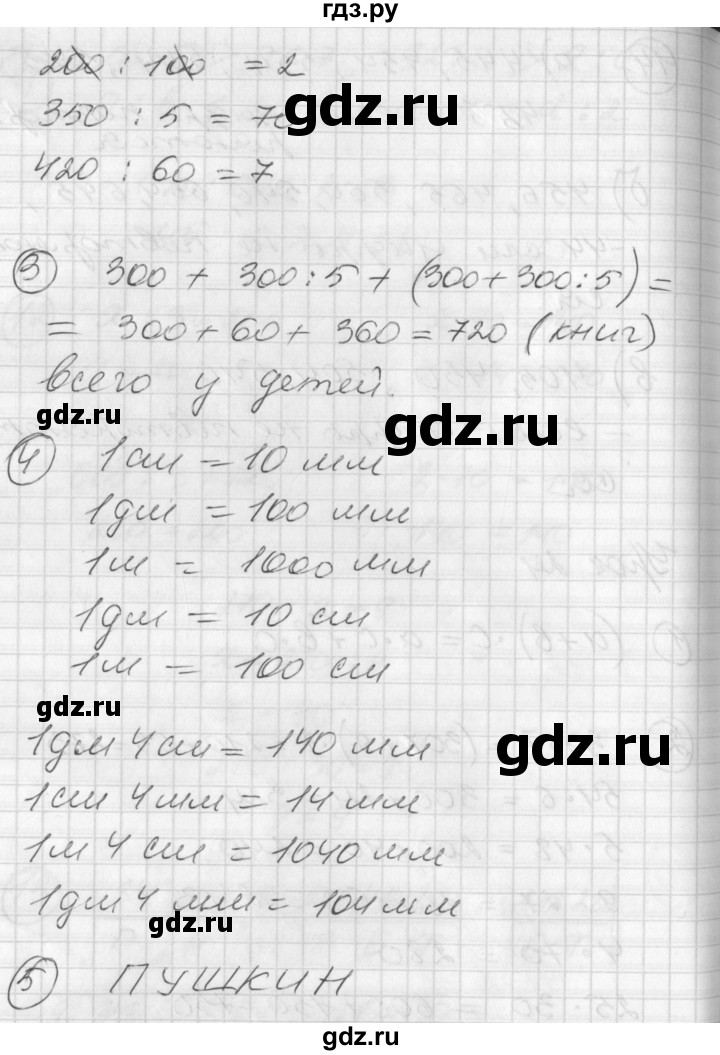 гдз.ру
200 : 100 = 2
350 : 5 = 70
420 : 60 = 7
gdz.ru
3 300 + 300:5 + (300+300:5) =
= 300+60+ 360 = 720 (книг)
всего у детей.
gdz.ru
gdz.ru
4 1 см = 10 мм
1 дм = 100 мм
1 м = 1000 мм
1 дм = 10 см
1 м = 100 см
gdz.ru
gdz.ru
1 дм 4 см = 140 мм
1 см 4 мм = 14 мм
1 м 4 см = 1040 мм
1 дм 4 мм = 104 мм
gdz.ru
5 ПУШКИН
gdz.ru